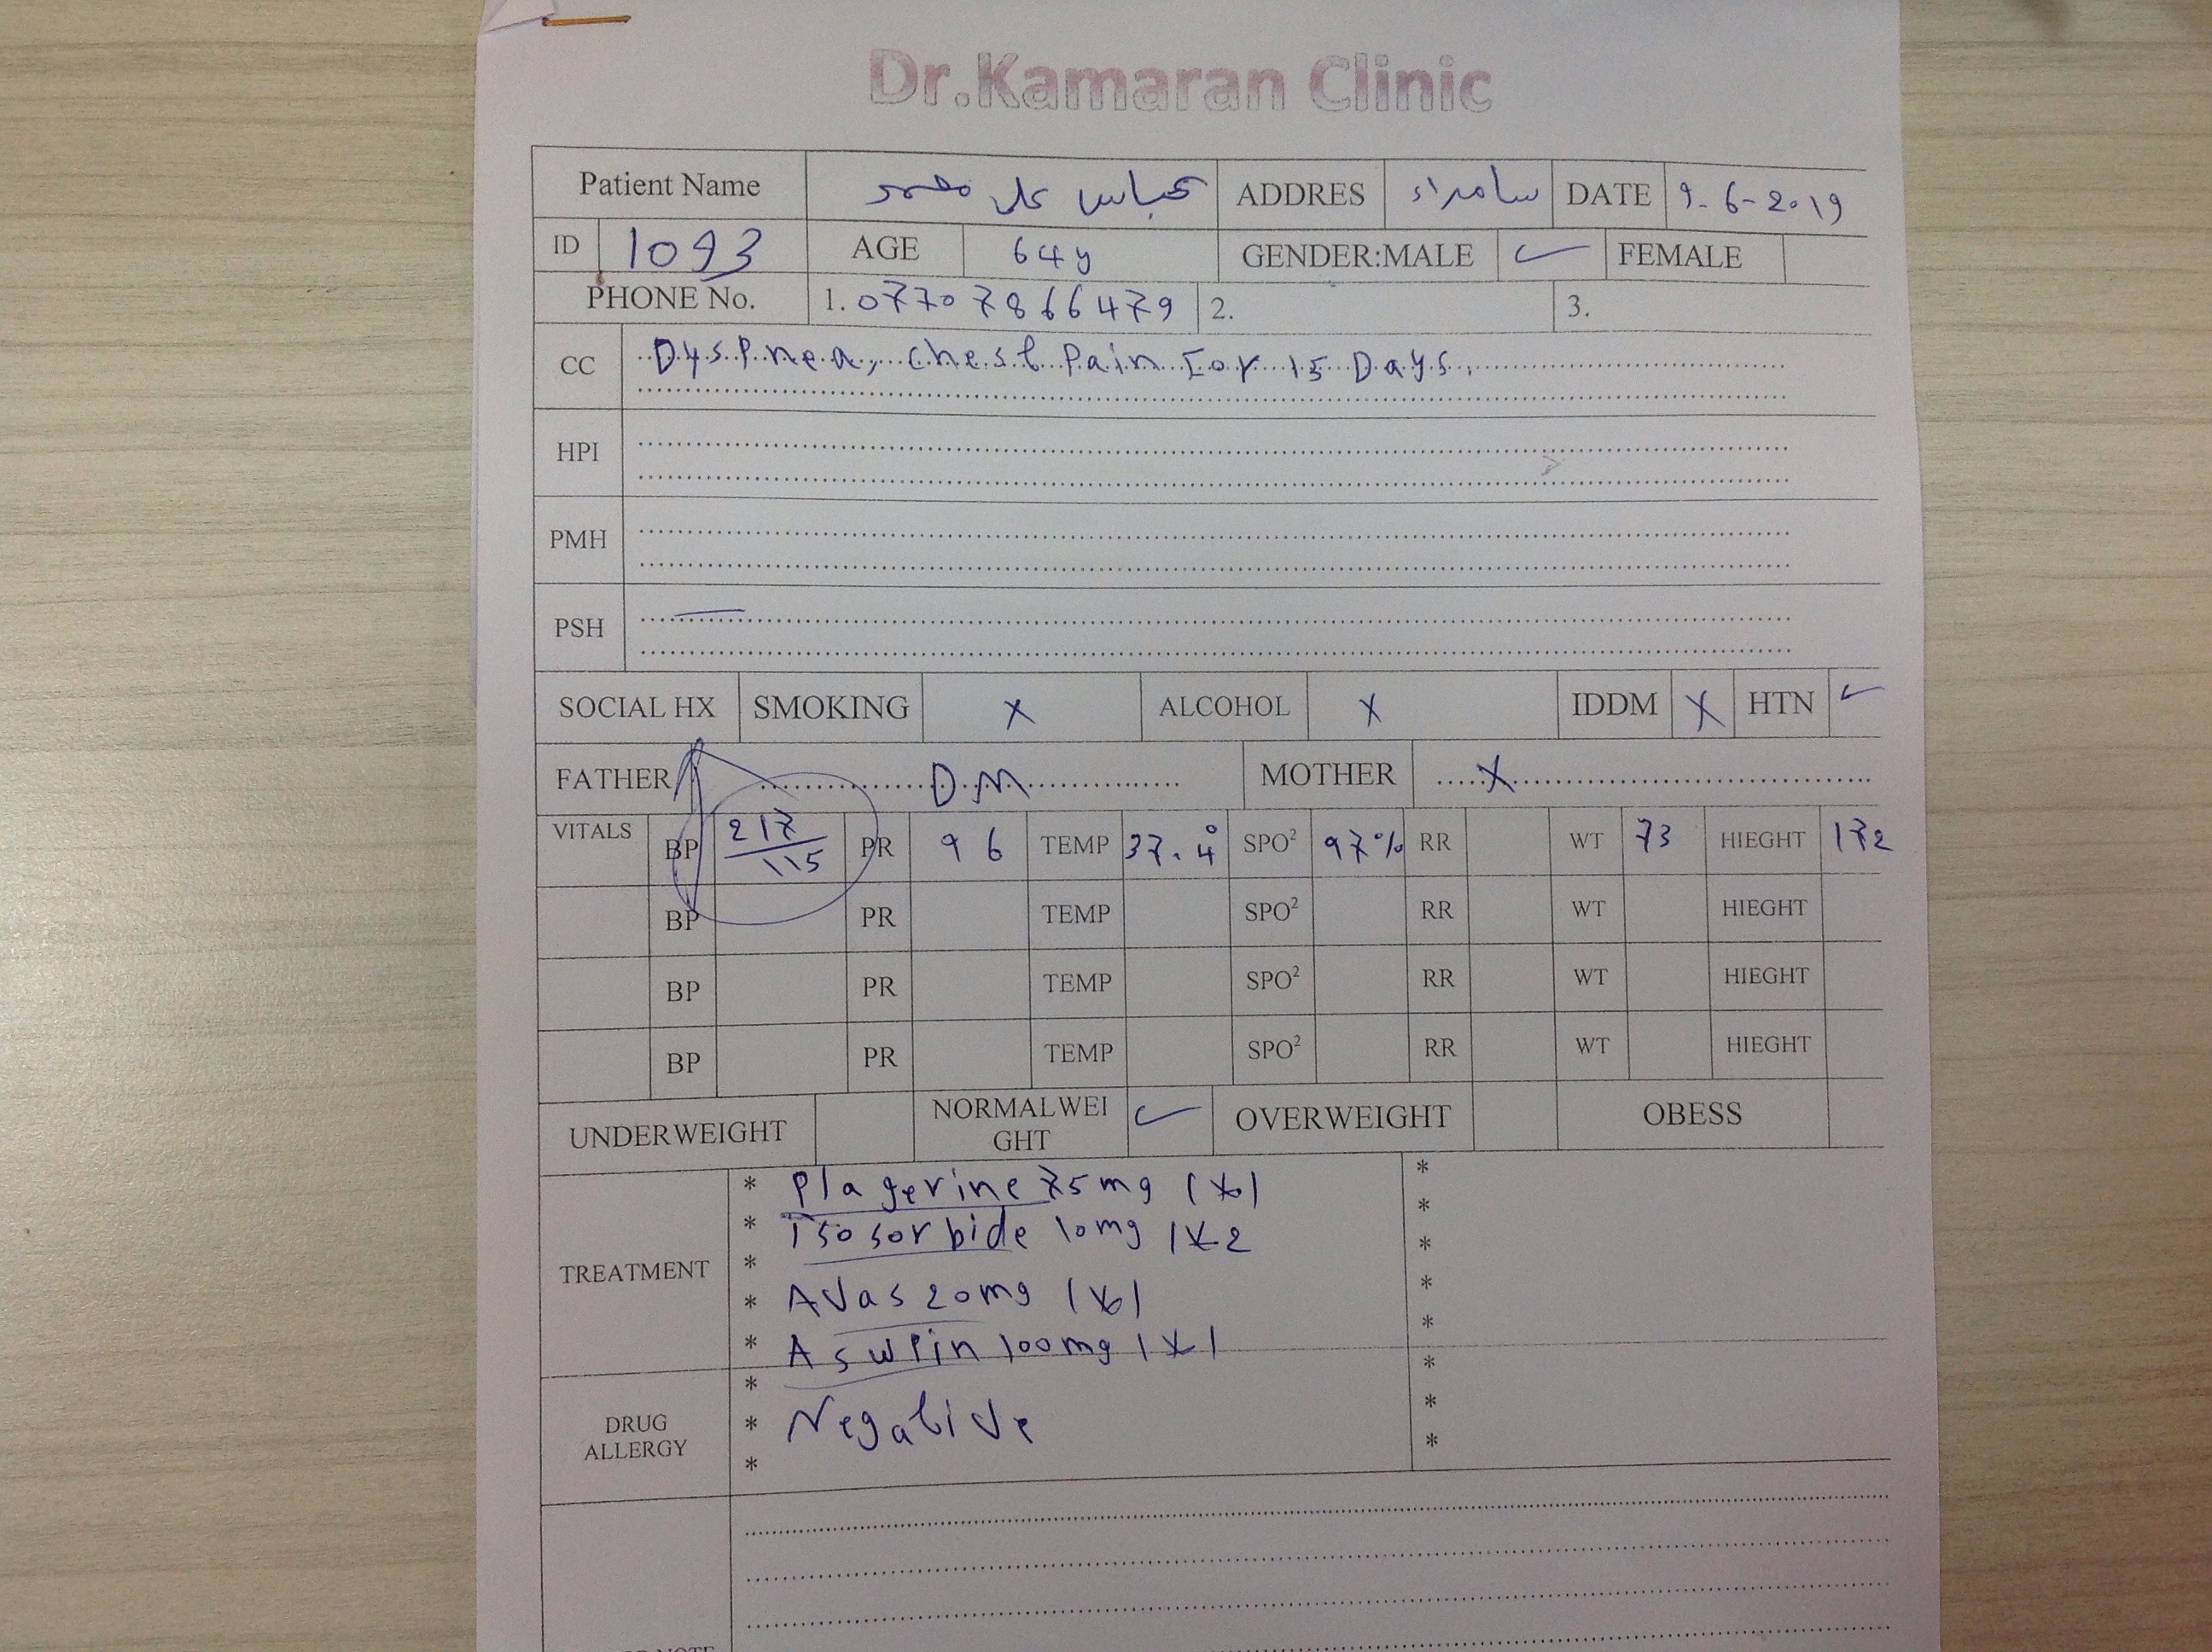 Dr.Kamaran Clinic
Patient Name عباس علي محمد ADDRES سامراء DATE 9-6-2019
ID 1093 AGE 64y GENDER:MALE ✓ FEMALE
PHONE No. 1. 07707866479 2. 3.
CC Dyspnea, chest Pain For 15 Days.
HPI
PMH
PSH —
SOCIAL HX SMOKING X ALCOHOL X IDDM X HTN ✓
FATHER D.M MOTHER X
VITALS BP 217/115 PR 96 TEMP 37.4° SPO² 97% RR WT 73 HIEGHT 172
BP PR TEMP SPO² RR WT HIEGHT
BP PR TEMP SPO² RR WT HIEGHT
BP PR TEMP SPO² RR WT HIEGHT
UNDERWEIGHT NORMALWEI
GHT ✓ OVERWEIGHT OBESS
TREATMENT
* Plagerine 75mg 1x1 *
* Isosorbide 10mg 1x2 *
* *
* Avas 20mg 1x1 *
* Aswpin 100mg 1x1 *
DRUG
ALLERGY
* *
* Negative *
* *